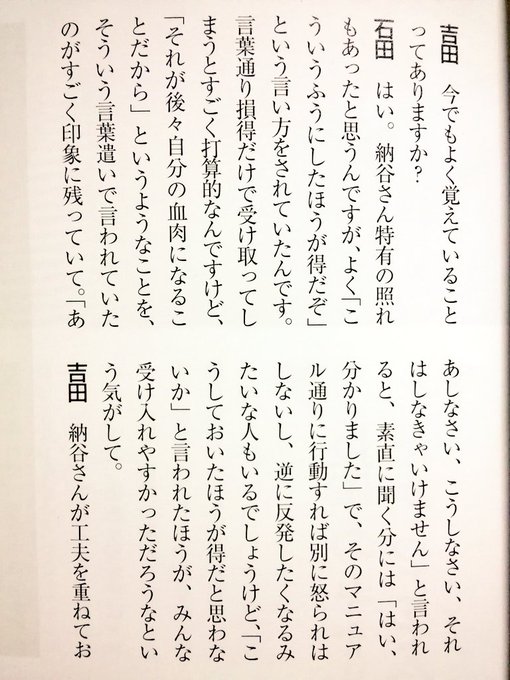 吉田　今でもよく覚えていること
ってありますか？
石田　はい。納谷さん特有の照れ
もあったと思うんですが、よく「こ
ういうふうにしたほうが得だぞ」
という言い方をされていたんです。
言葉通り損得だけで受け取ってし
まうとすごく打算的なんですけど、
「それが後々自分の血肉になるこ
とだから」というようなことを、
そういう言葉遣いで言われていた
のがすごく印象に残っていて。「あ
あしなさい、こうしなさい、それ
はしなきゃいけません」と言われ
ると、素直に聞く分には「はい、
分かりました」で、そのマニュア
ル通りに行動すれば別に怒られは
しないし、逆に反発したくなるみ
たいな人もいるでしょうけど、「こ
うしておいたほうが得だと思わな
いか」と言われたほうが、みんな
受け入れやすかっただろうなとい
う気がして。
吉田　納谷さんが工夫を重ねてお